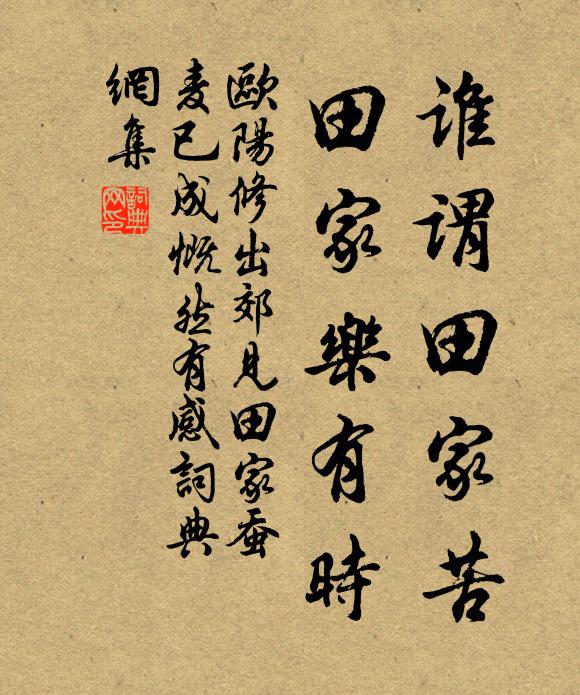 誰謂田家苦
田家樂有時
歐陽修出郊見田家蚕
麦已成慨然有感詞典
網集
詞典
网印